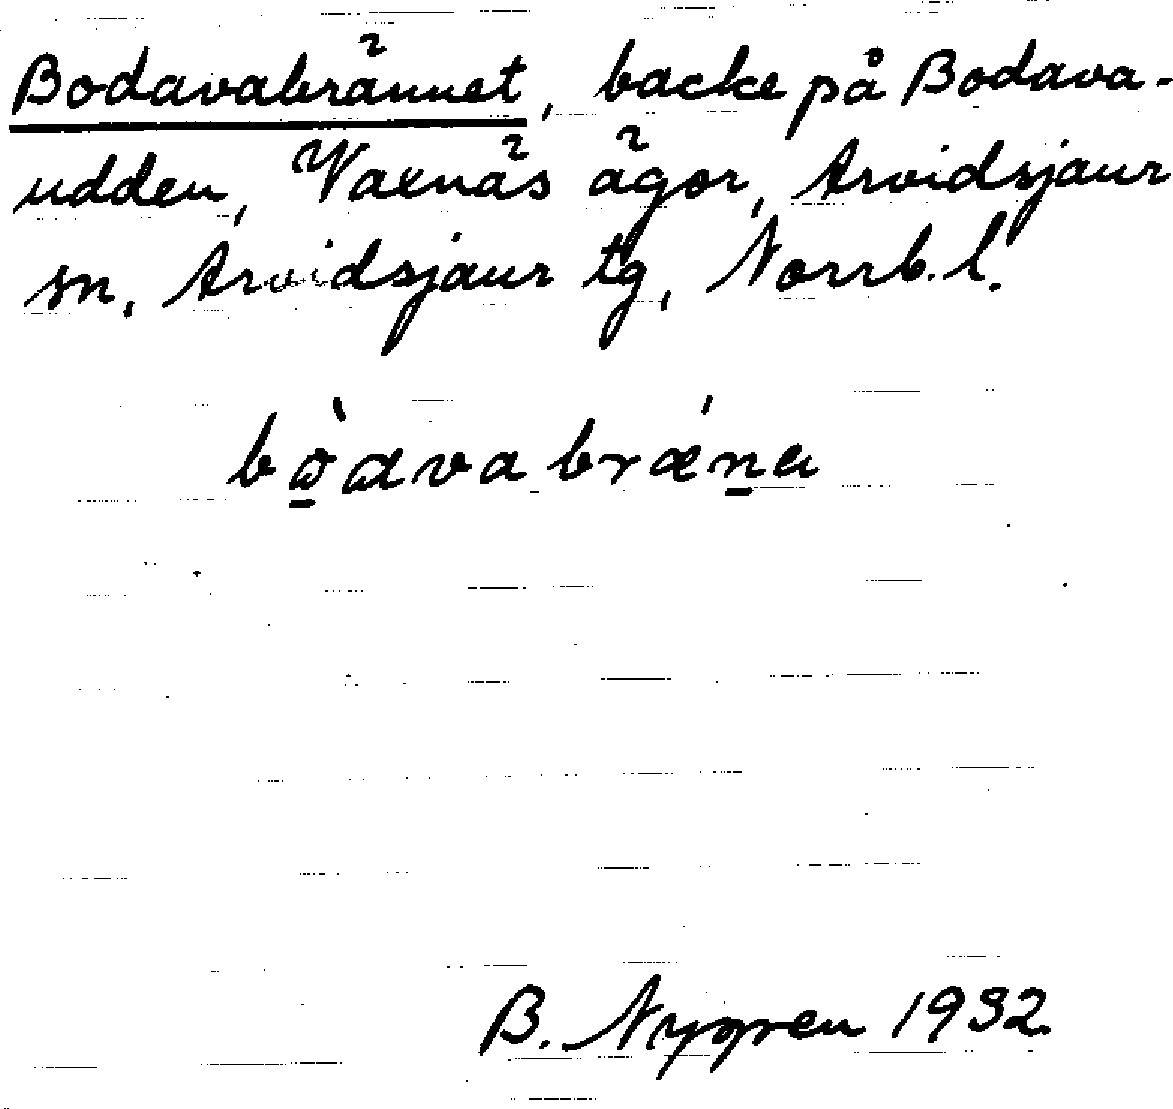 Bodavabrännet, backe på Bodava-
udden, Vaxnäs ägor, Arvidsjaur
sn, Arvidsjaur tg, Norrb. l.
B. Nygren 1932